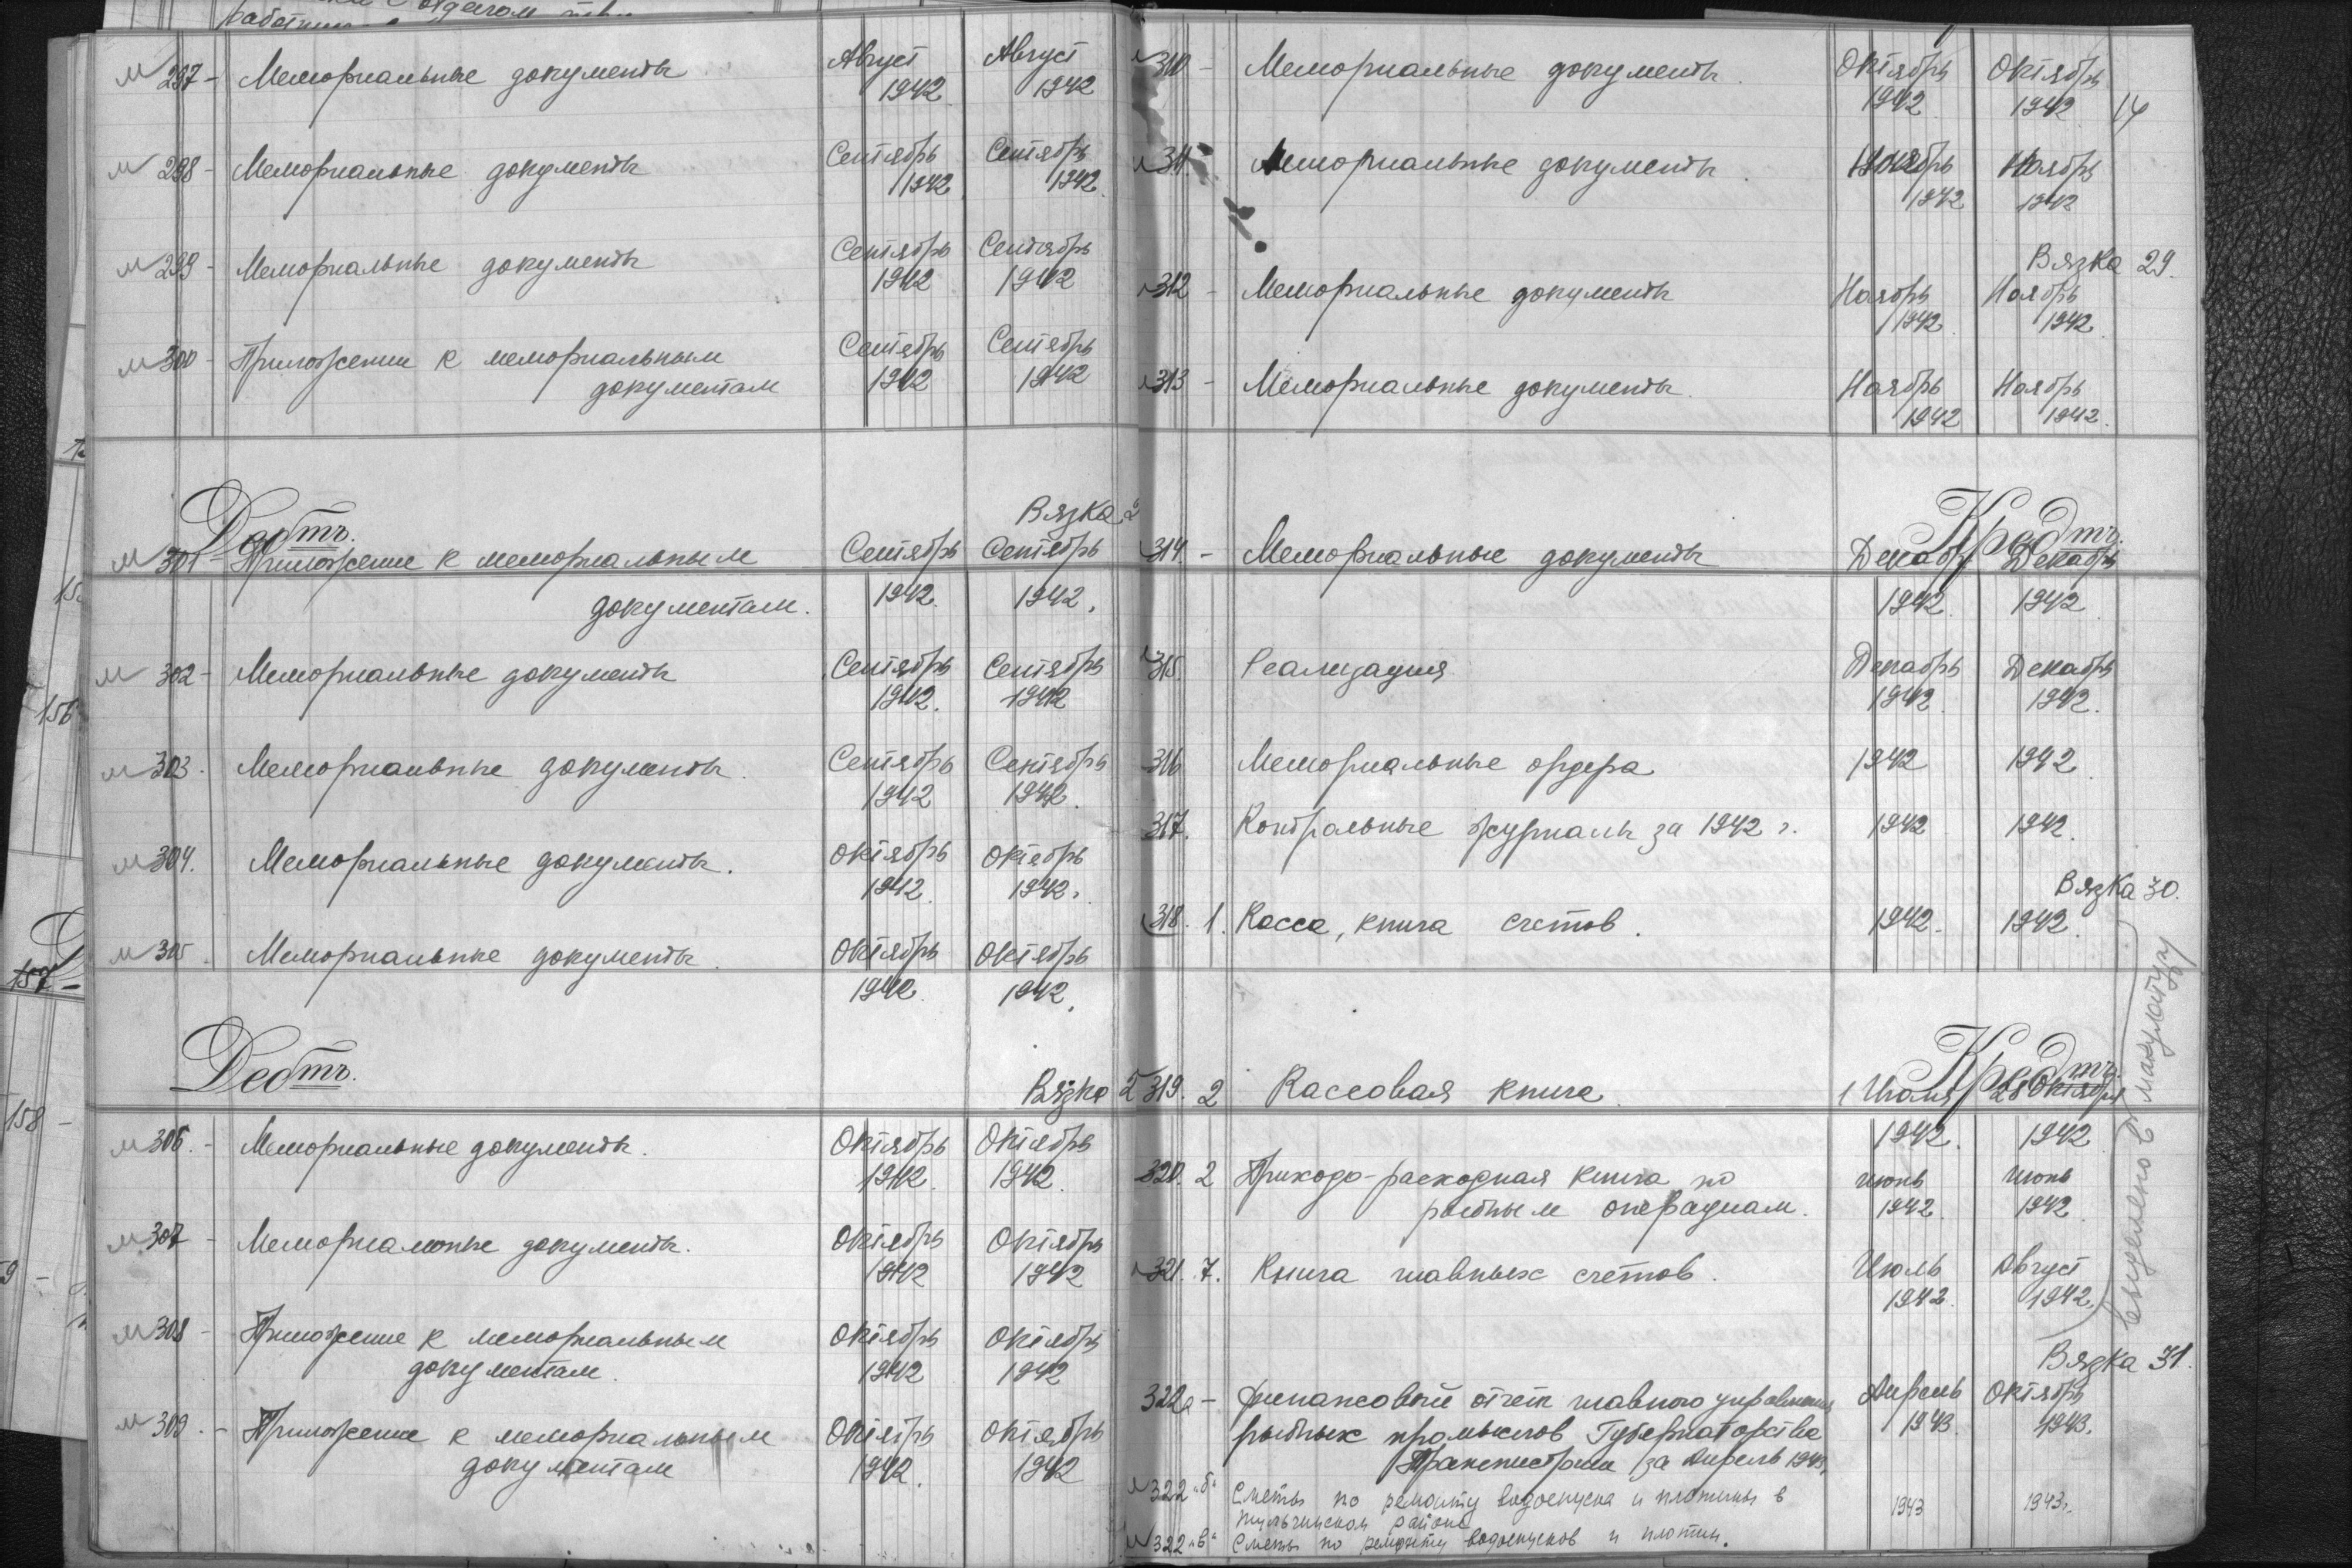 м 297 - Мемориальные документы Август Август
1942 1942
м 298 - Мемориальные документы Сентябрь Сентябрь
1942 1942
м 299 - Мемориальные документы Сентябрь Сентябрь
1942 1942
м 300 - Приложении к мемориальным Сентябрь Сентябрь
документам 1942 1942
Вязка 2
Дебтъ.
м 301 - Приложение к мемориальным Сентябрь Сентябрь
документам. 1942. 1942.
м 302 - Мемориальные документы Сентябрь Сентябрь
1942. 1942
м 303. Мемориальные документы. Сентябрь Сентябрь
1942 1942.
м 304. Мемориальные документы. Октябрь Октябрь
1942. 1942.
м 305. Мемориальные документы. Октябрь Октябрь
1942. 1942.
Дебтъ.
Вязка 2
м 306. - Мемориальные документы. Октябрь Октябрь
1942. 1942.
м 307 - Мемориальные документы. Октябрь Октябрь
1942 1942
м 308 - Приложение к мемориальным Октябрь Октябрь
документам. 1942 1942
м 309. - Приложение к мемориальным Октябрь Октябрь
документам 1942. 1942
310 - Мемориальные документы. Октябрь Октябрь
1942 1942 14
311 - Мемориальные документы. Ноябрь Ноябрь
1942 1942
Вязка 29.
312 - Мемориальные документы Ноябрь Ноябрь
1942. 1942.
313 - Мемориальные документы. Ноябрь Ноябрь
1942 1942.
Кредтъ.
314. - Мемориальные документы Декабрь Декабрь
1942. 1942
315. Реализация Декабрь Декабрь
1942. 1942.
316 Мемориальные ордера 1942 1942.
317. Контральные журналы за 1942 г. 1942 1942.
Вязка 30.
318. 1. Касса, книга счетов. 1942. 1942.
Кредтъ.
319. 2 Кассовая книга 1 Июля 28 Октября
1942. 1942
320. 2 Приходо-расходная книга по июнь июнь
рыбным операциям. 1942. 1942
321. 7. Книга главных счетов. Июль Август
1942. 1942.
выделено в макулатуру
Вязка 31.
322а - Финансовый отчет главного управления Апрель Октябрь
рыбных промыслов Губернаторства 1943. 1943.
Транснистрии за Апрель 1943.
м 322 "б" Сметы по ремонту водоспуска и плотины в 1943 1943г.
тульчинском районе
м 322 "в" Сметы по ремонту водоспусков и плотин.
156
157 -
158 -